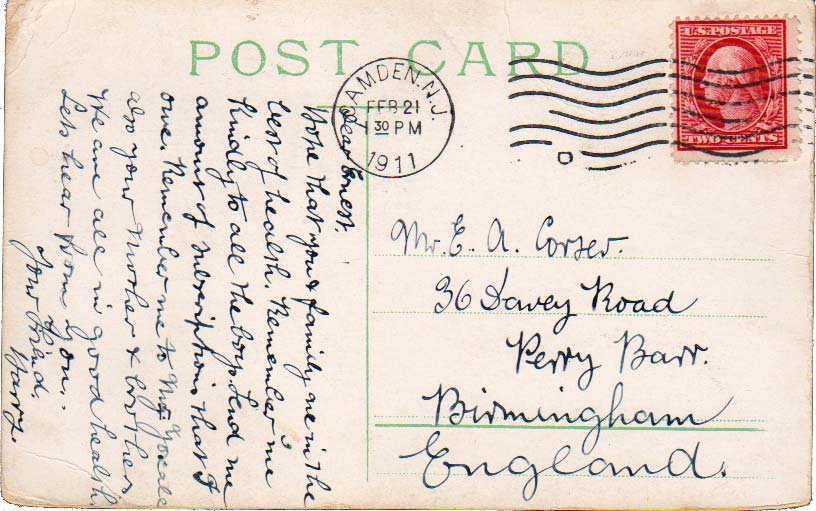 POST CARD
CAMDEN. N.J.
FEB 21
1 30 PM
1911
D
U.S. POSTAGE
TWO CENTS
Dear Ernest.
Hope that you & family are in the
best of health. Remember me
Kindly to all the boys. Send me
amount of subscriptions that I
owe. Remember me to Mr
also your Mother & brother
We are all in good health
Lets hear from you..
Your Friend.
Harry
Mr. E. A. Corser.
36 Davey Road
Perry Barr.
Birmingham
England.